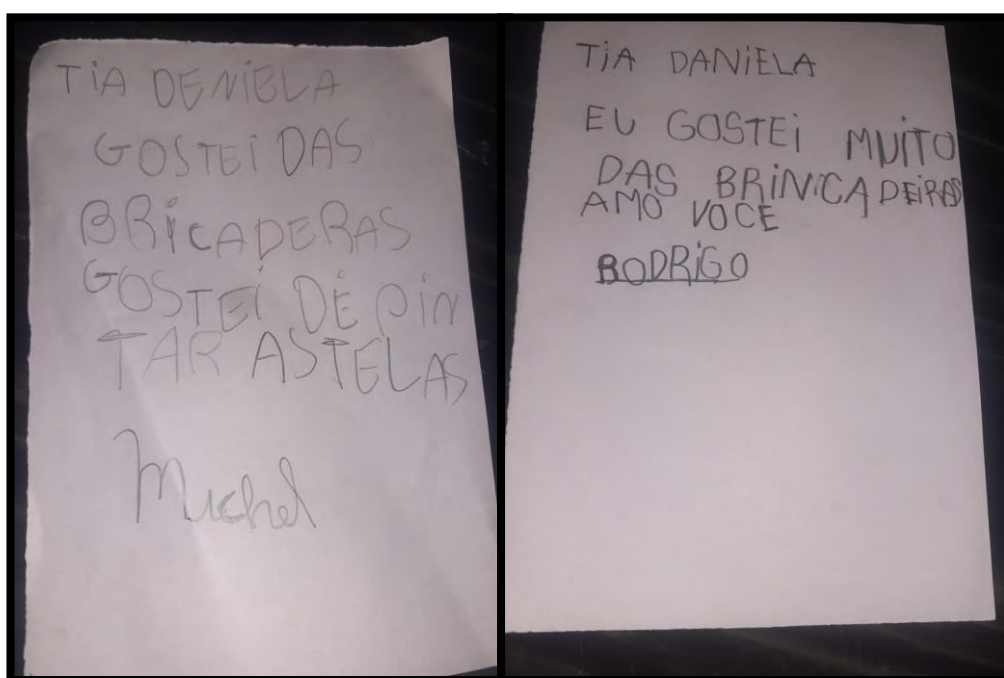 TiA DENiELA
GOSTEi DAS
BRiCADERAS
GOSTEi DE PiN
TAR ASTELAS
Michel
TiA DANiELA
EU GOSTEi MUiTO
DAS BRiNiCADEiRAS
AMO VOCE
RODRiGO